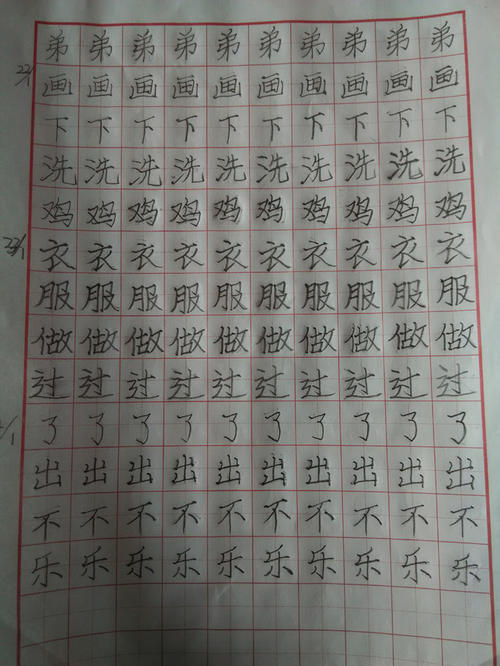 弟弟弟弟弟弟弟弟弟弟
画画画画画画画画画画
下下下下下下下下下下
洗洗洗洗洗洗洗洗洗洗
鸡鸡鸡鸡鸡鸡鸡鸡鸡鸡
衣衣衣衣衣衣衣衣衣衣
服服服服服服服服服服
做做做做做做做做做做
过过过过过过过过过过
了了了了了了了了了了
出出出出出出出出出出
不不不不不不不不不不
乐乐乐乐乐乐乐乐乐乐